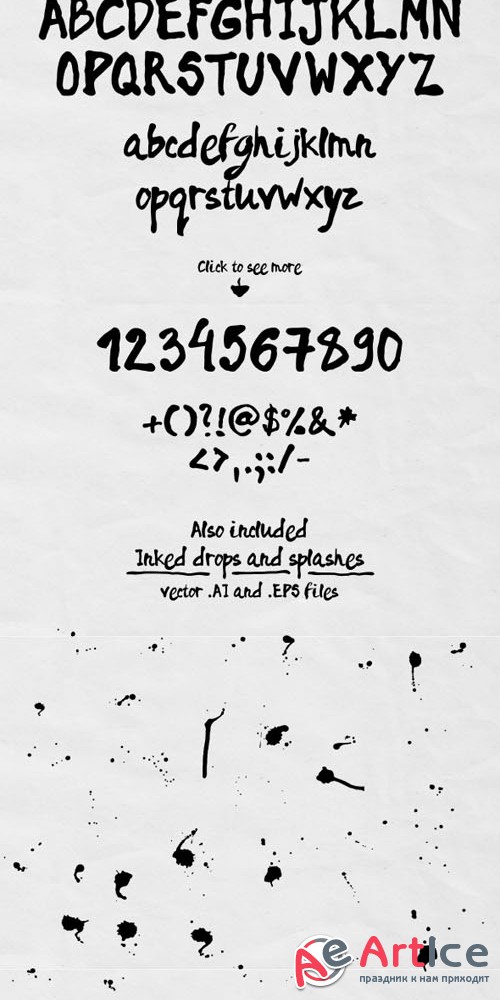 ABCDEFGHIJKLMN
OPQRSTUVWXYZ
abcdefghijklmn
opqrstuvwxyz
Click to see more
1234567890
+()?!@$%&*
<>,.;:/-
Also included
Inked drops and splashes
vector .AI and .EPS files
Ae ArtIce
праздник к нам приходит